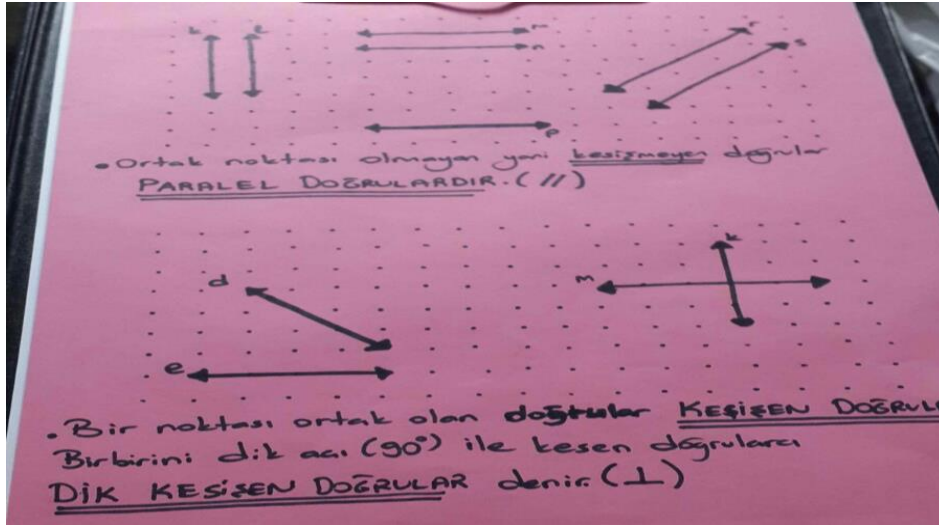 k l m r
n s
p
• Ortak noktası olmayan yani kesişmeyen doğrular
PARALEL DOĞRULARDIR. (//)
k
d m
e
• Bir noktası ortak olan doğrular KEŞİŞEN DOĞRUL
Birbirini dik açı (90°) ile kesen doğrulara
DİK KESİŞEN DOĞRULAR denir. (⊥)